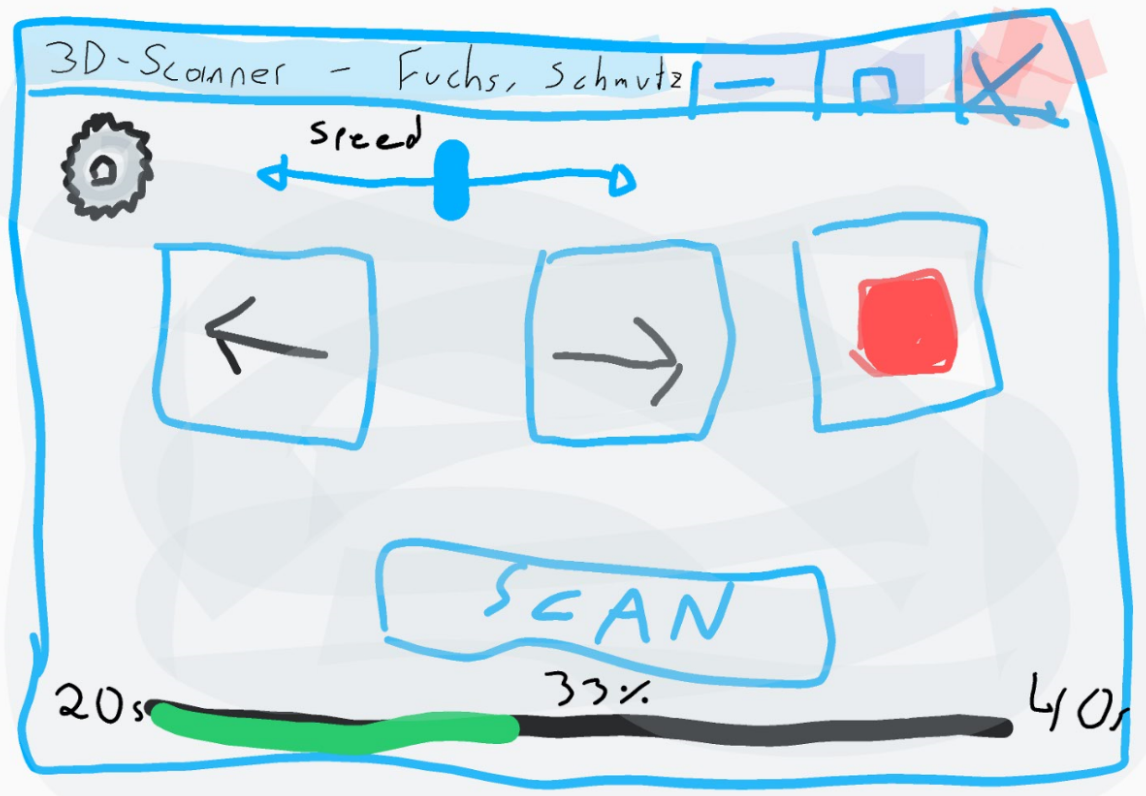 3D-Scanner - Fuchs, Schmutz
Speed
SCAN
20s 33% 40s